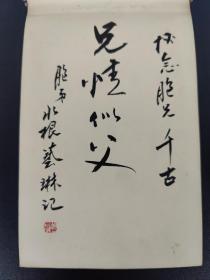 怀念胞兄 千古
兄情似父
胞弟水根艺琳记